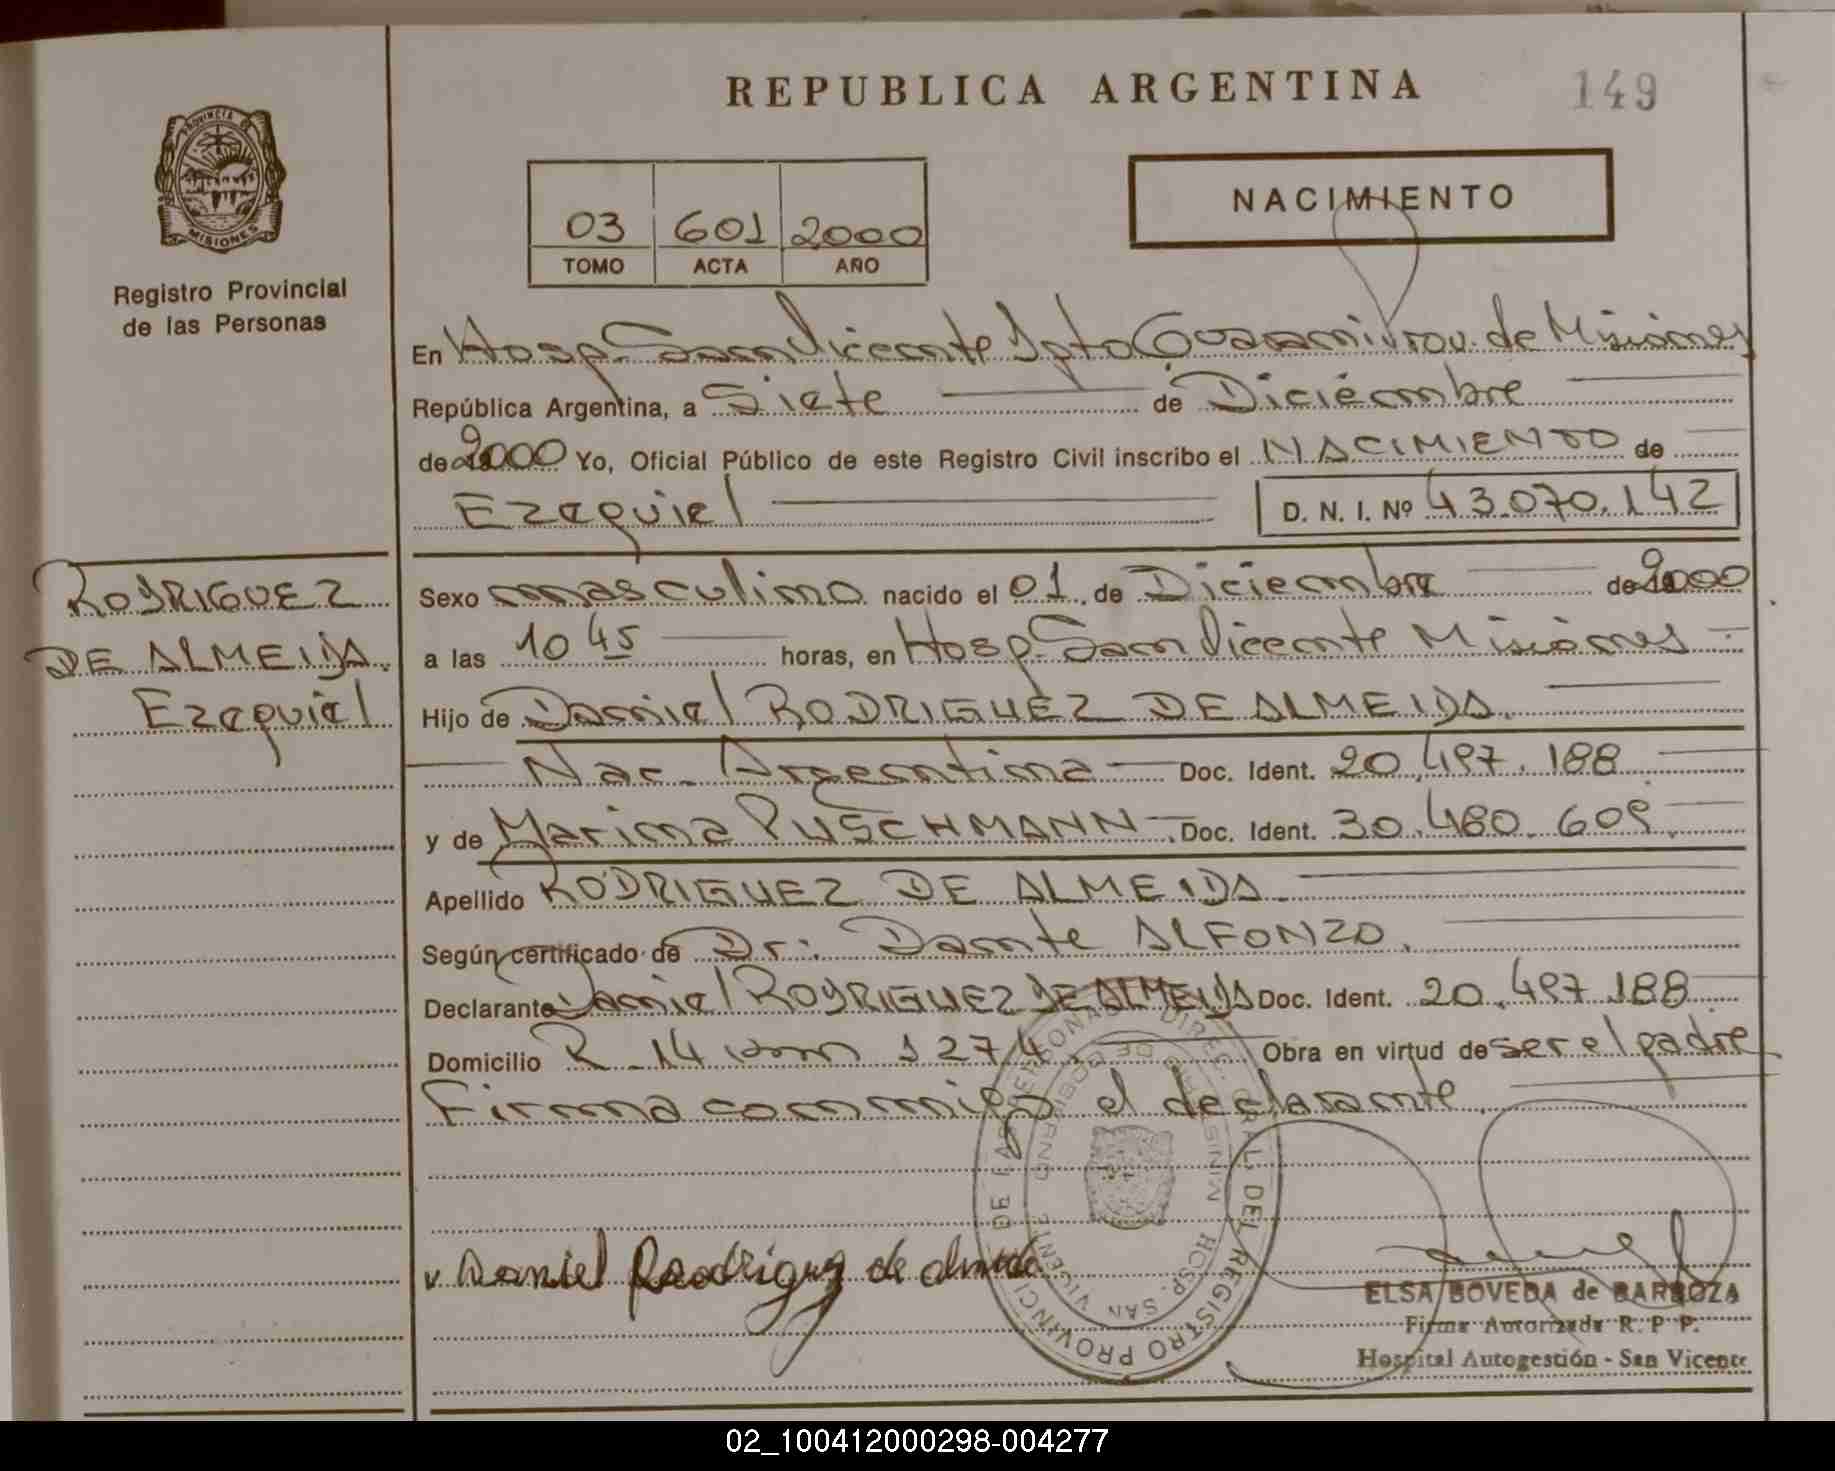 REPUBLICA ARGENTINA
149
PROVINCIA DE
MISIONES
Registro Provincial
de las Personas
NACIMIENTO
03 601 2000
TOMO ACTA AÑO
En Hosp. San Vicente Dpto Guarani Prov. de Misiones
República Argentina, a Siete de Diciembre
de 2000 Yo, Oficial Público de este Registro Civil inscribo el NACIMIENTO de
Ezequiel D. N. I. Nº 43.070.142
RODRIGUEZ
DE ALMEIDA.
Ezequiel
Sexo masculino nacido el 01 de Diciembre de 2000
a las 10 45 horas, en Hosp. San Vicente Misiones
Hijo de Daniel RODRIGUEZ DE ALMEIDA.
Nac. Argentina Doc. Ident. 20.497.188
y de Marina PUSCHMANN. Doc. Ident. 30.480.609.
Apellido RODRIGUEZ DE ALMEIDA
Según certificado de Dr. Dante ALFONZO.
Declarante Daniel RODRIGUEZ DE ALMEIDA Doc. Ident. 20.497.188
Domicilio R. 14 km 1274. Obra en virtud de ser el padre
Firma conmigo el declarante
Daniel Rodriguez de almeida
DIREC. GRAL. DEL REGISTRO PROVINCIAL DE LAS PERSONAS
HOSP. SAN VICENTE
ELSA BOVEDA de BARBOZA
Firma Autorizada R. P. P.
Hospital Autogestión - San Vicente
02_100412000298-004277